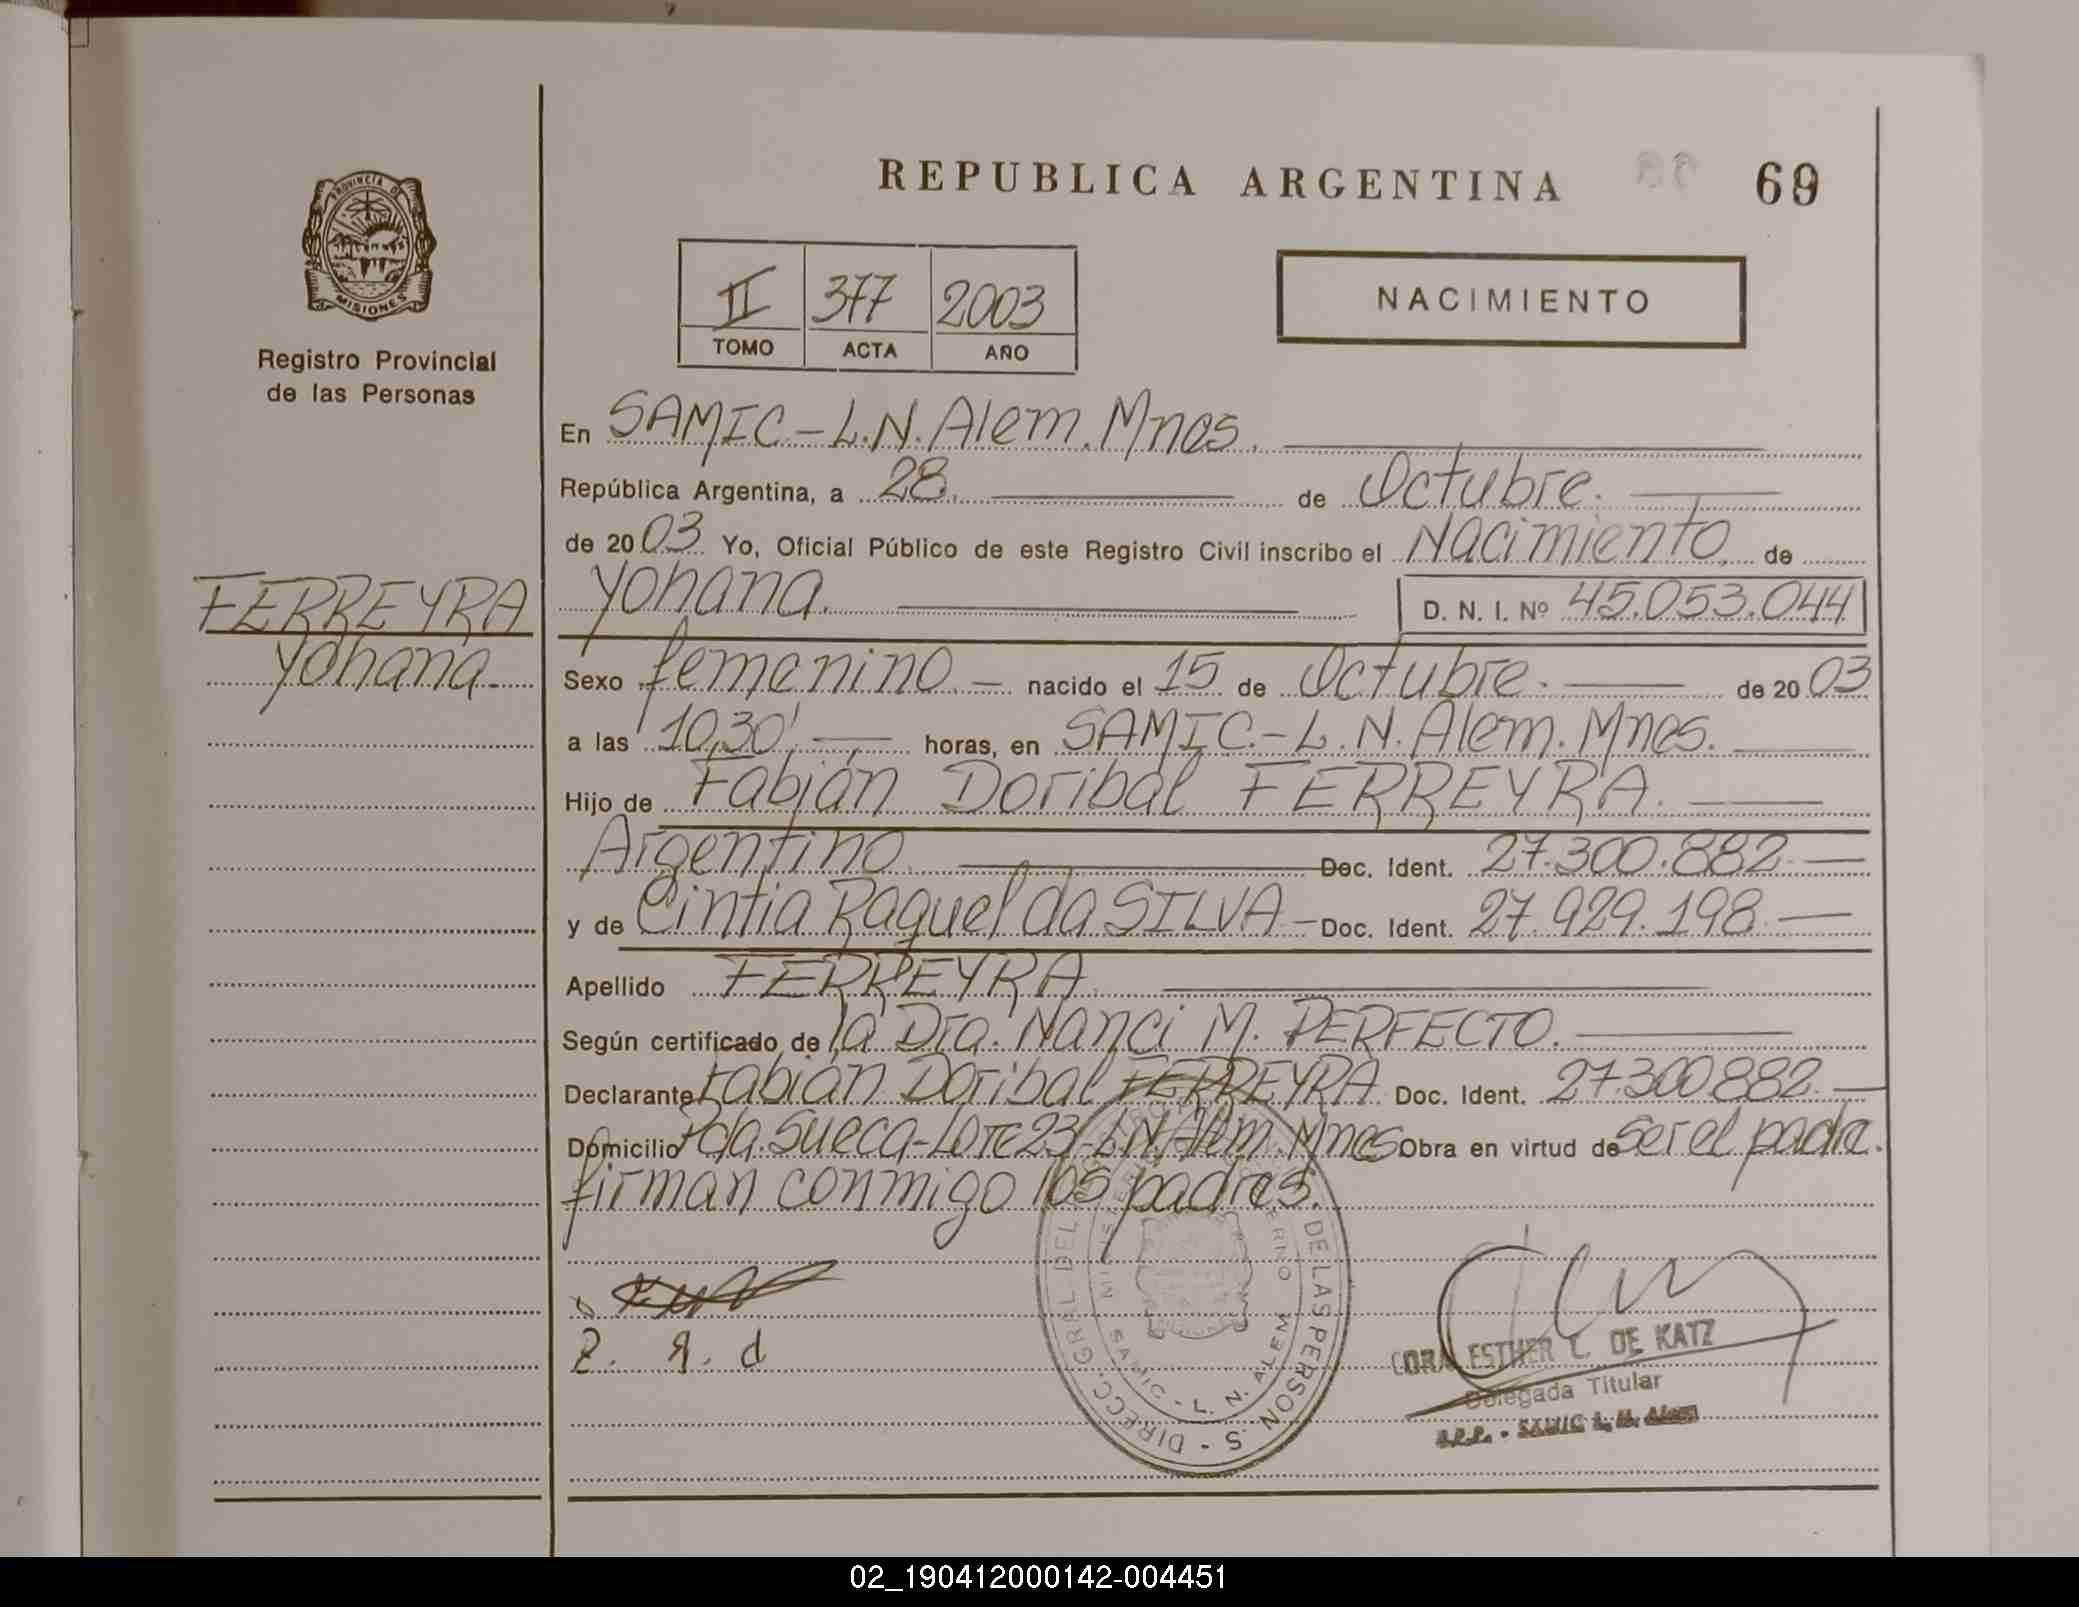 REPUBLICA ARGENTINA 69
PROVINCIA DE
MISIONES
Registro Provincial
de las Personas
II 377 2003
TOMO ACTA AÑO
NACIMIENTO
En SAMIC-L.N.Alem.Mnes.
República Argentina, a 28. de Octubre.
de 2003 Yo, Oficial Público de este Registro Civil inscribo el Nacimiento de
FERREYRA
Yohana.
Yohana. D. N. I. Nº 45.053.044
Sexo femenino.- nacido el 15 de Octubre. de 2003
a las 10,30' horas, en SAMIC.-L.N.Alem.Mnes.
Hijo de Fabián Doribal FERREYRA.
Argentino. Doc. Ident. 27.300.882.-
y de Cintia Raquel da SILVA- Doc. Ident. 27.929.198.-
Apellido FERREYRA.
Según certificado de la Dra. Nanci M. PERFECTO.
Declarante Fabián Doribal FERREYRA. Doc. Ident. 27.300882.-
Domicilio Pda.Sueca-Lote 23-L.N.Alem.Mnes Obra en virtud de ser el padre.
firman conmigo los padres.
DIRECC. GRAL DEL DE LAS PERSON.S
SAMIC - L. N. ALEM
CORA ESTHER L. DE KATZ
Delegada Titular
R.P.P. - SAMIC L. N. Alem
02_190412000142-004451